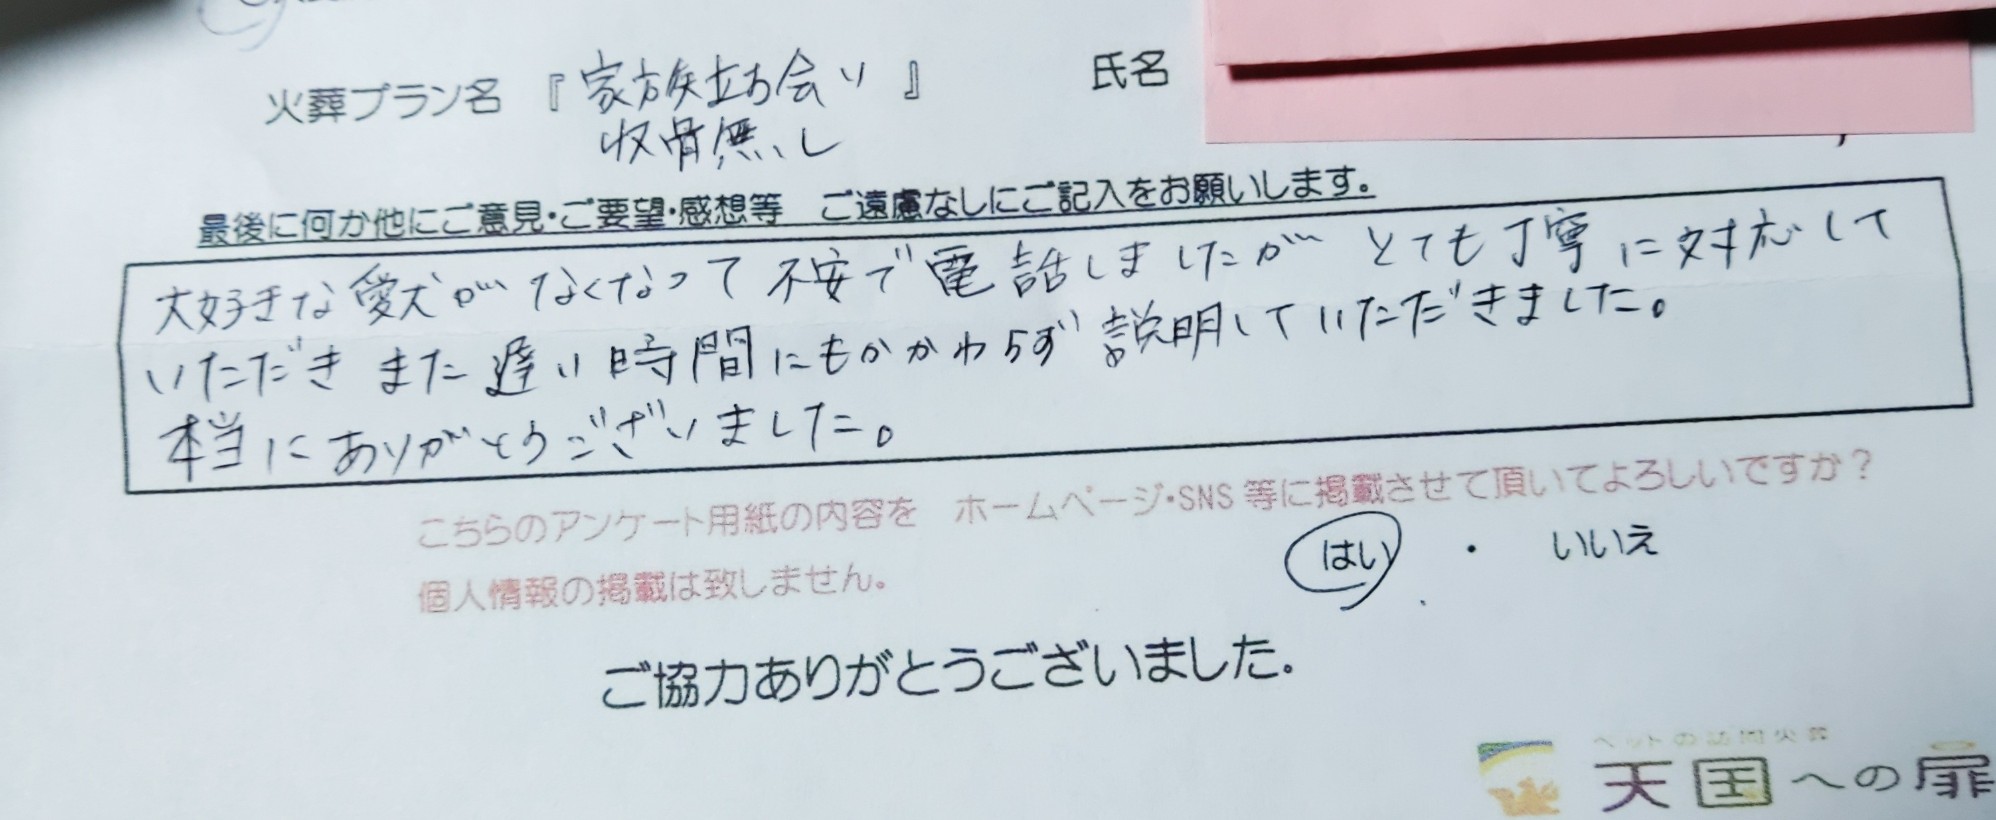 火葬プラン名 『家族立ち会い』 氏名
収骨無し
最後に何か他にご意見・ご要望・感想等 ご遠慮なしにご記入をお願いします。
大好きな愛犬がなくなって不安で電話しましたがとても丁寧に対応して
いただきまた遅い時間にもかかわらず説明していただきました。
本当にありがとうございました。
こちらのアンケート用紙の内容を ホームページ・SNS等に掲載させて頂いてよろしいですか？
はい ・ いいえ
個人情報の掲載は致しません。
ご協力ありがとうございました。
ペットの訪問火葬
天国への扉